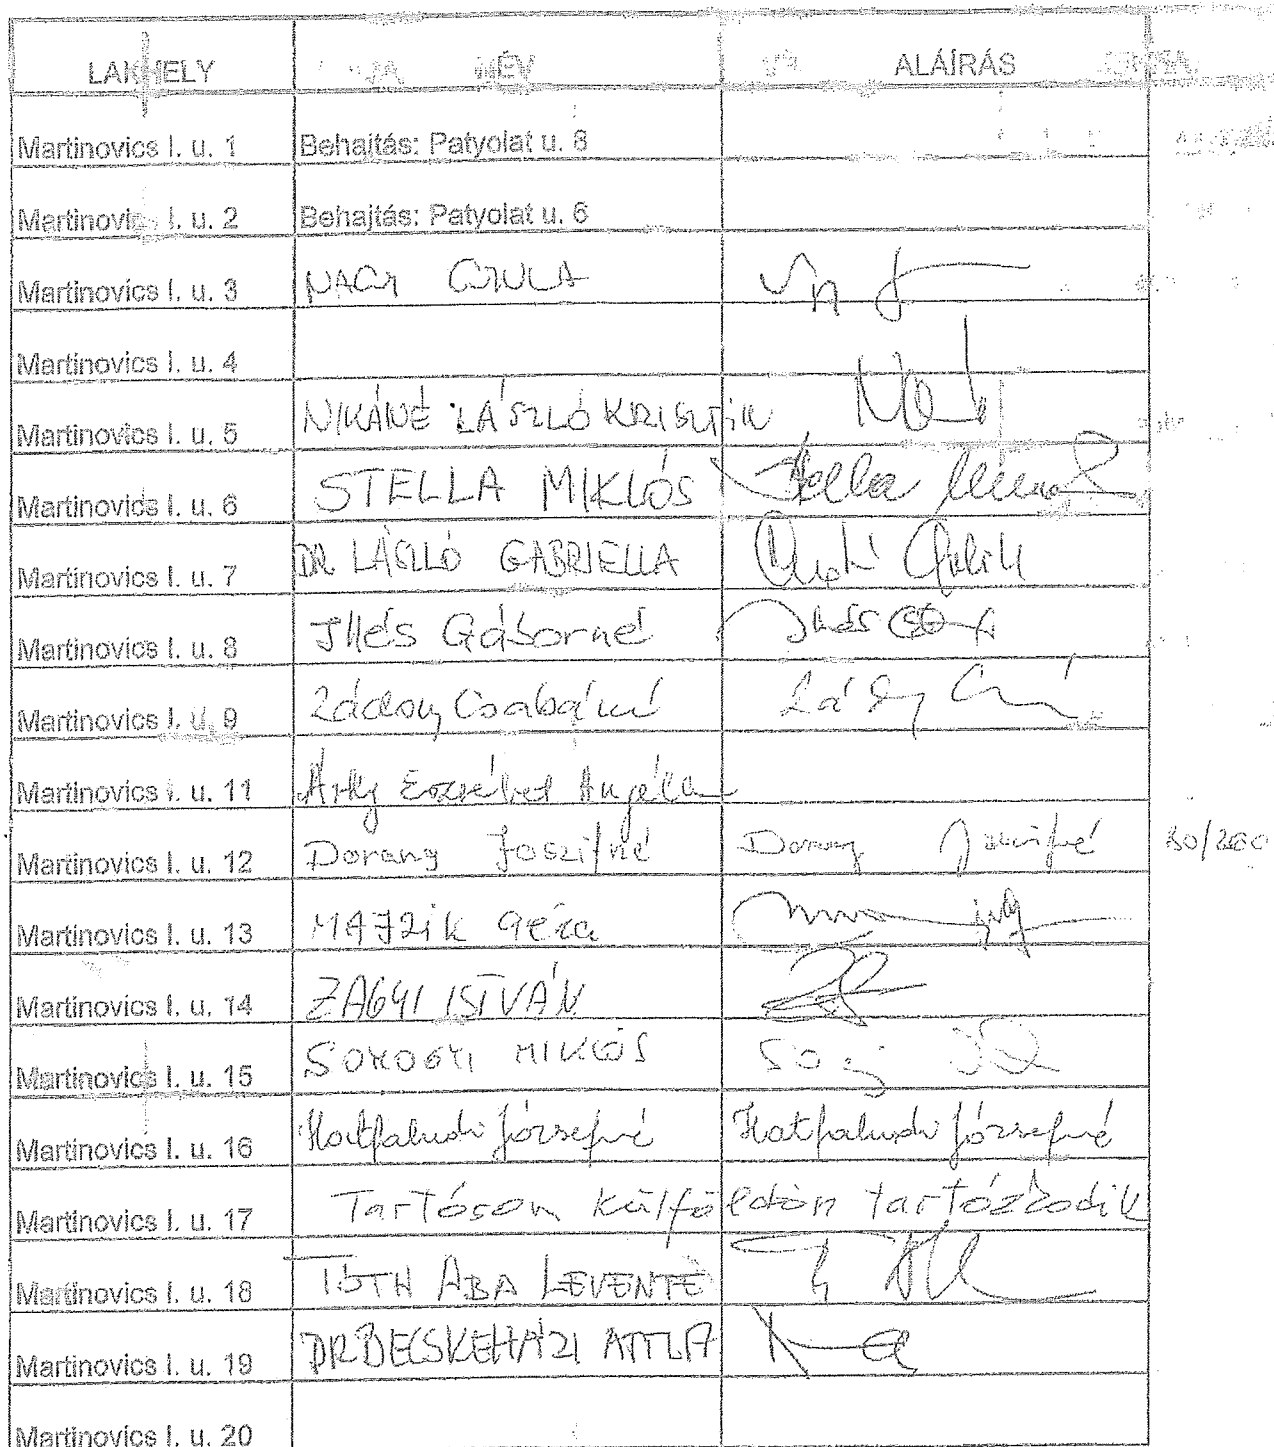 LAKHELY NÉV ALÁÍRÁS
Martinovics I. u. 1 Behajtás: Patyolat u. 8
Martinovics I. u. 2 Behajtás: Patyolat u. 6
Martinovics I. u. 3 NAGY GYULA
Martinovics I. u. 4
Martinovics I. u. 5 NIKÁNÉ LÁSZLÓ KRISZTIN
Martinovics I. u. 6 STELLA MIKLÓS Stella
Martinovics I. u. 7 DR. LÁSZLÓ GABRIELLA
Martinovics I. u. 8 Illés Gáborné
Martinovics I. u. 9 Zádory Csabáné
Martinovics I. u. 11 Erzsébet Angéla
Martinovics I. u. 12 Dorang Joszifné Dorang Joszifné
Martinovics I. u. 13 MAJZIK Géza
Martinovics I. u. 14 ZAGYI ISTVÁN
Martinovics I. u. 15 SOMOGYI MIKLÓS
Martinovics I. u. 16 Hatfaludi Józsefné Hatfaludi Józsefné
Martinovics I. u. 17 Tartóson külföldön tartózkodik
Martinovics I. u. 18 TÓTH ABA LEVENTE
Martinovics I. u. 19 DR BECSKEHÁZI ATTILA
Martinovics I. u. 20